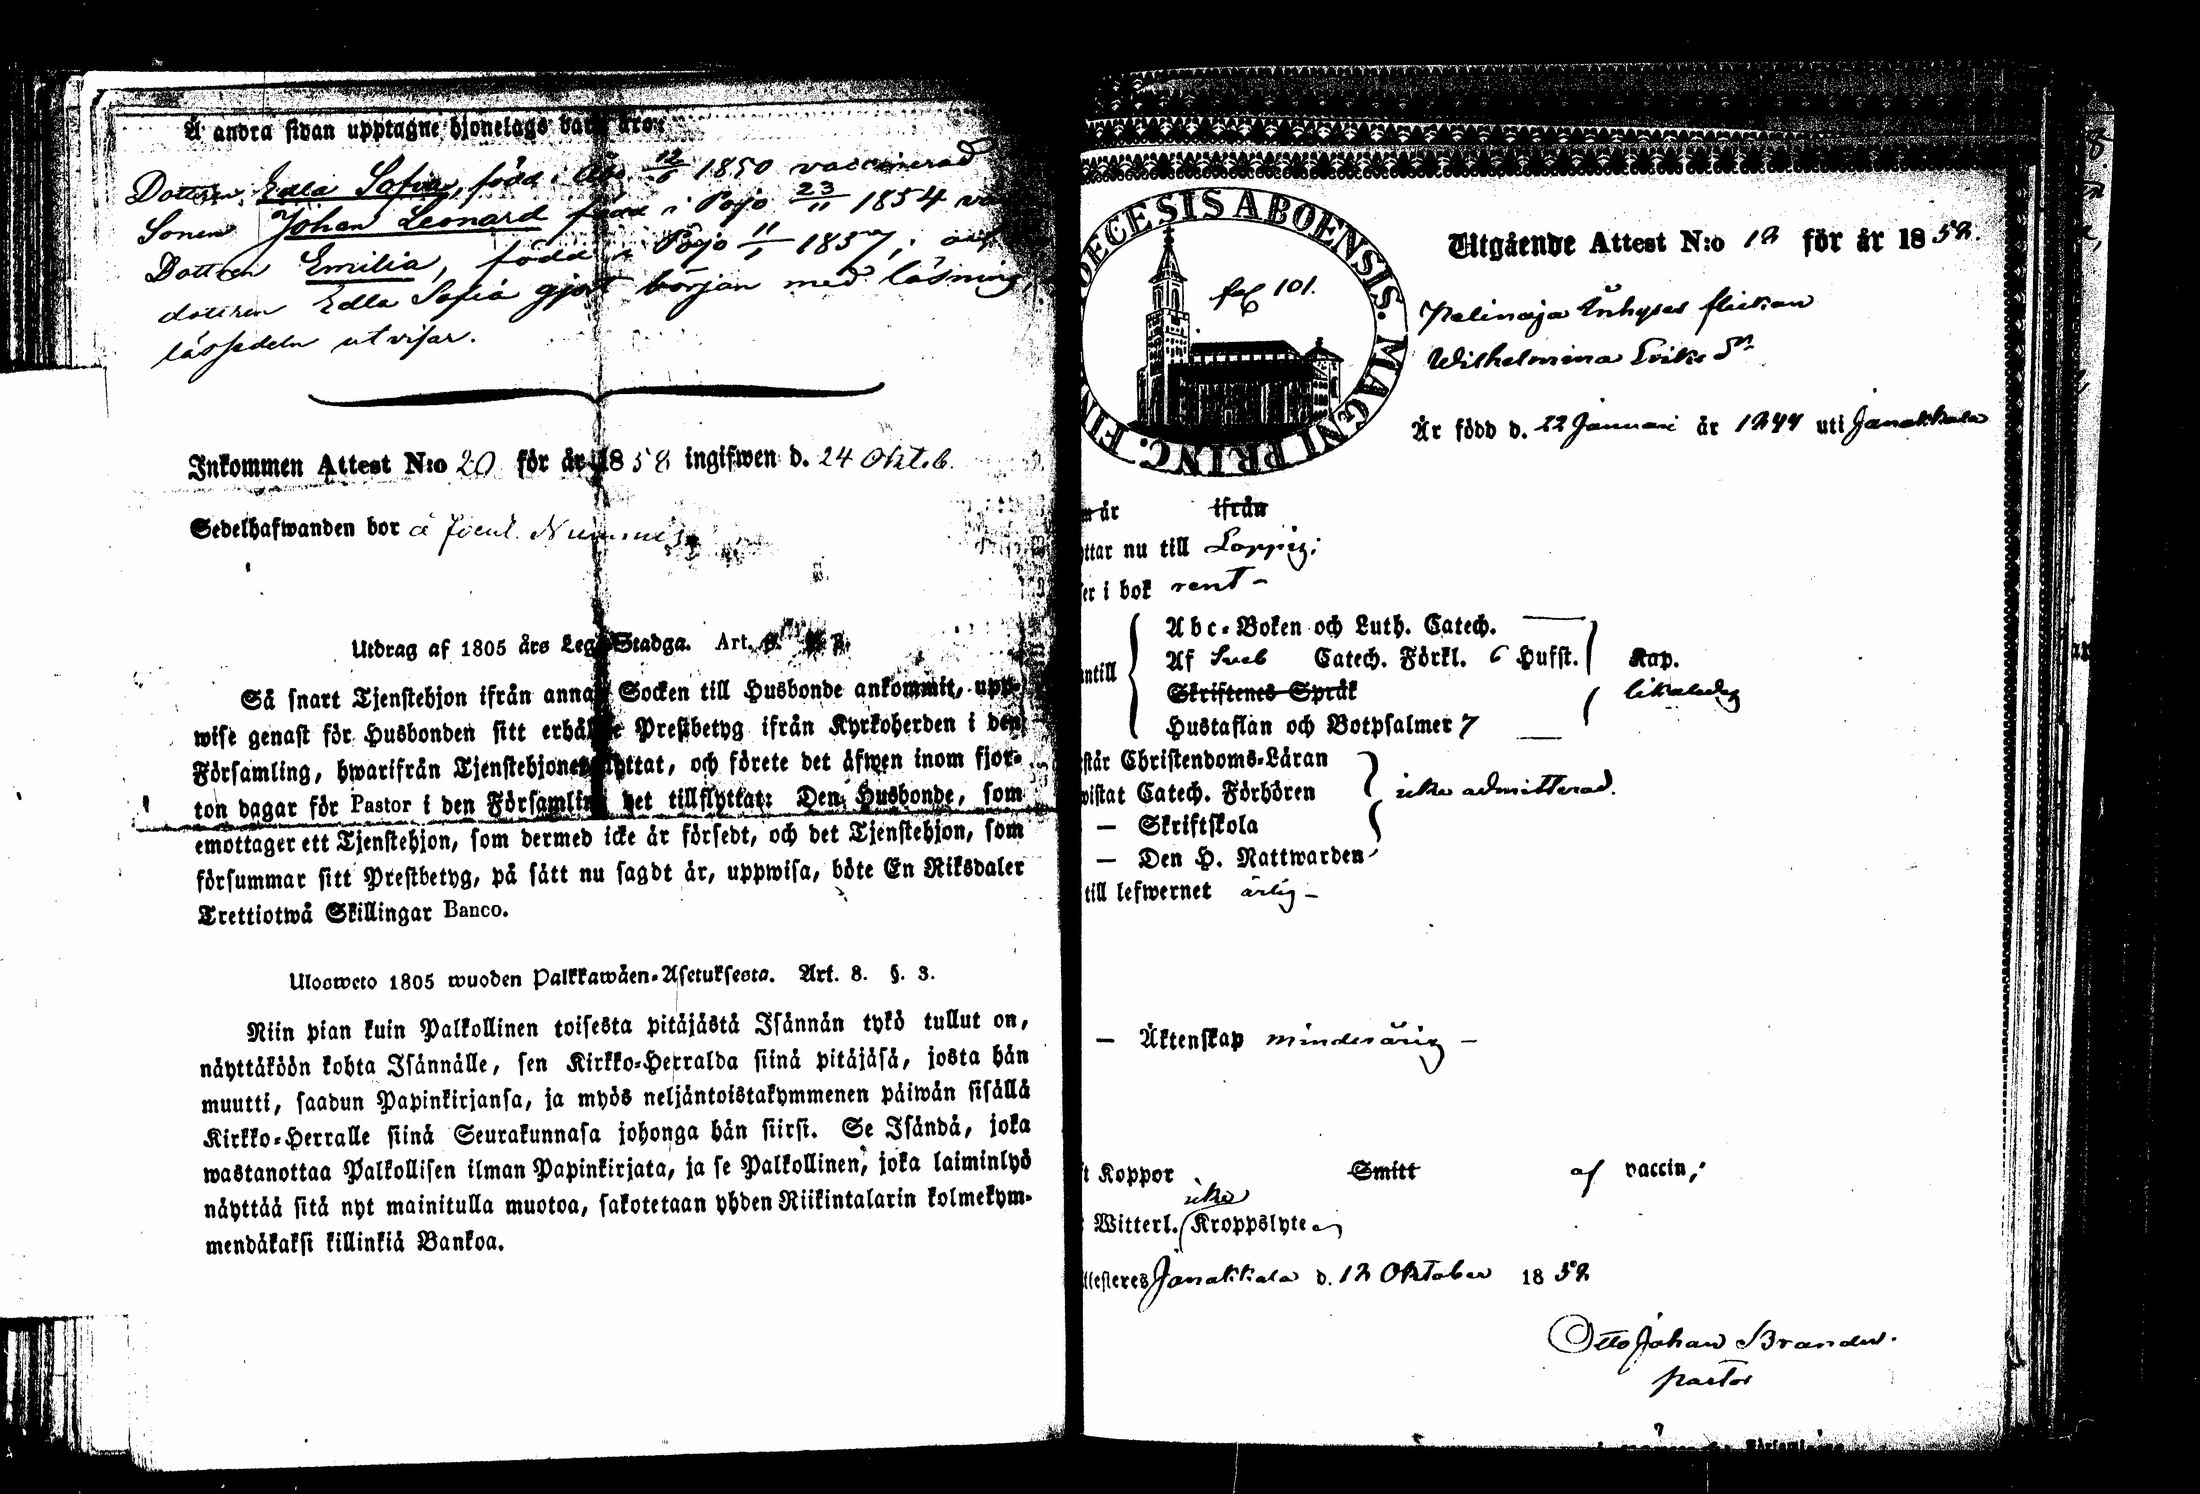 Å andra sidan upptagne hjonelags barn äro:
Dottren Edla Sofia, född i Åbo 12/6 1850 vaccinerad
Sonen Johan Leonard född i Pojo 23/11 1854
Dottren Emilia, född i Pojo 11/ 1857;
dottren Edla Sofia gjort början med läsning
lässedeln utvisar.
Inkommen Attest N:o 20 för år 1858 ingifwen d. 24 Oktob.
Sedelhafwanden bor å
Utdrag af 1805 års Lego Stadga. Art. 8. §. 3.
Så snart Tjenstehjon ifrån annan Socken till Husbonde ankommit, upp-
wise genast för Husbonden sitt erhållne Prestbetyg ifrån Kyrkoherden i den
Församling, hwarifrån Tjenstehjonet flyttat, och förete det äfwen inom fjor-
ton dagar för Pastor i den Församling det tillflyttat: Den Husbonde, som
emottager ett Tjenstehjon, som dermed icke är försedt, och det Tjenstehjon, som
försummar sitt Prestbetyg, på sätt nu sagdt är, uppwisa, böte En Riksdaler
Trettiotwå Skillingar Banco.
Ulosweto 1805 wuoden Palkkawäen-Asetuksesta. Art. 8. §. 3.
Niin pian kuin Palkollinen toisesta pitäjästä Isännän tykö tullut on,
näyttäköön kohta Isännälle, sen Kirkko-Herralda siinä pitäjäsä, josta hän
muutti, saadun Papinkirjansa, ja myös neljäntoistakymmenen päiwän sisällä
Kirkko-Herralle siinä Seurakunnasa johonga hän siirsi. Se Isändä, joka
wastanottaa Palkollisen ilman Papinkirjata, ja se Palkollinen, joka laiminlyö
näyttää sitä nyt mainitulla muotoa, sakotetaan yhden Riikintalarin kolmekym-
mendäkaksi killinkiä Bankoa.
DIOECESIS ABOENSIS. MAGNI PRINC. FIN
fol 101.
Utgående Attest N:o 12 för år 1858.
Inhyses flickan
Wilhelmina Eriks Dr
Är född d. 22 Januari år 1844 uti Janakkala
år ifrån
ttar nu till Loppis;
er i bok rent –
Abc-Boken och Luth. Catech.
Af Sveb Catech. Förkl. 6 Hufst. Kap.
ntill
Skriftenes Språk likaledes
Hustaflan och Botpsalmer 7
står Christendoms-Läran
wistat Catech. Förhören icke admitterad.
— Skriftskola
— Den H. Nattwarden
till lefwernet ärlig –
— Äktenskap minderårig –
t Koppor Smitt af vaccin;
icke
Witterl. Kroppslyte
llesteres Janakkala d. 12 Oktober 1858
Otto Johan Brander.
pastor